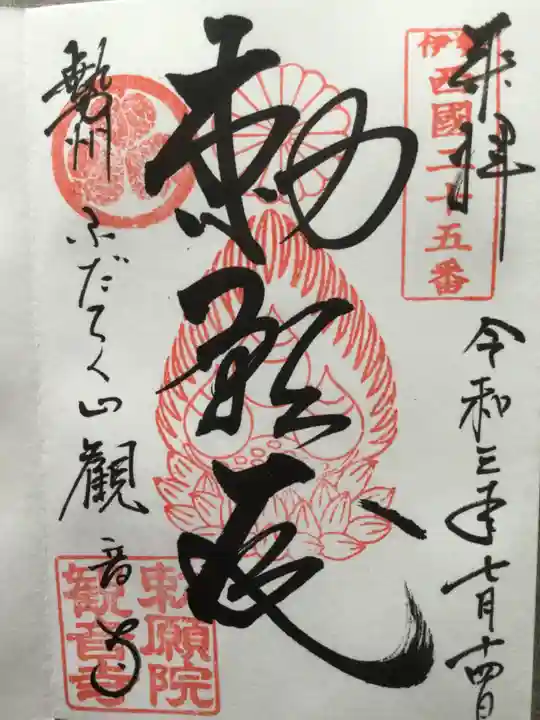 奉拝
伊勢西國二十五番
令和三年七月十四日
勅願殿
勢州 ふだらく山 觀音寺
勅願院
観音寺